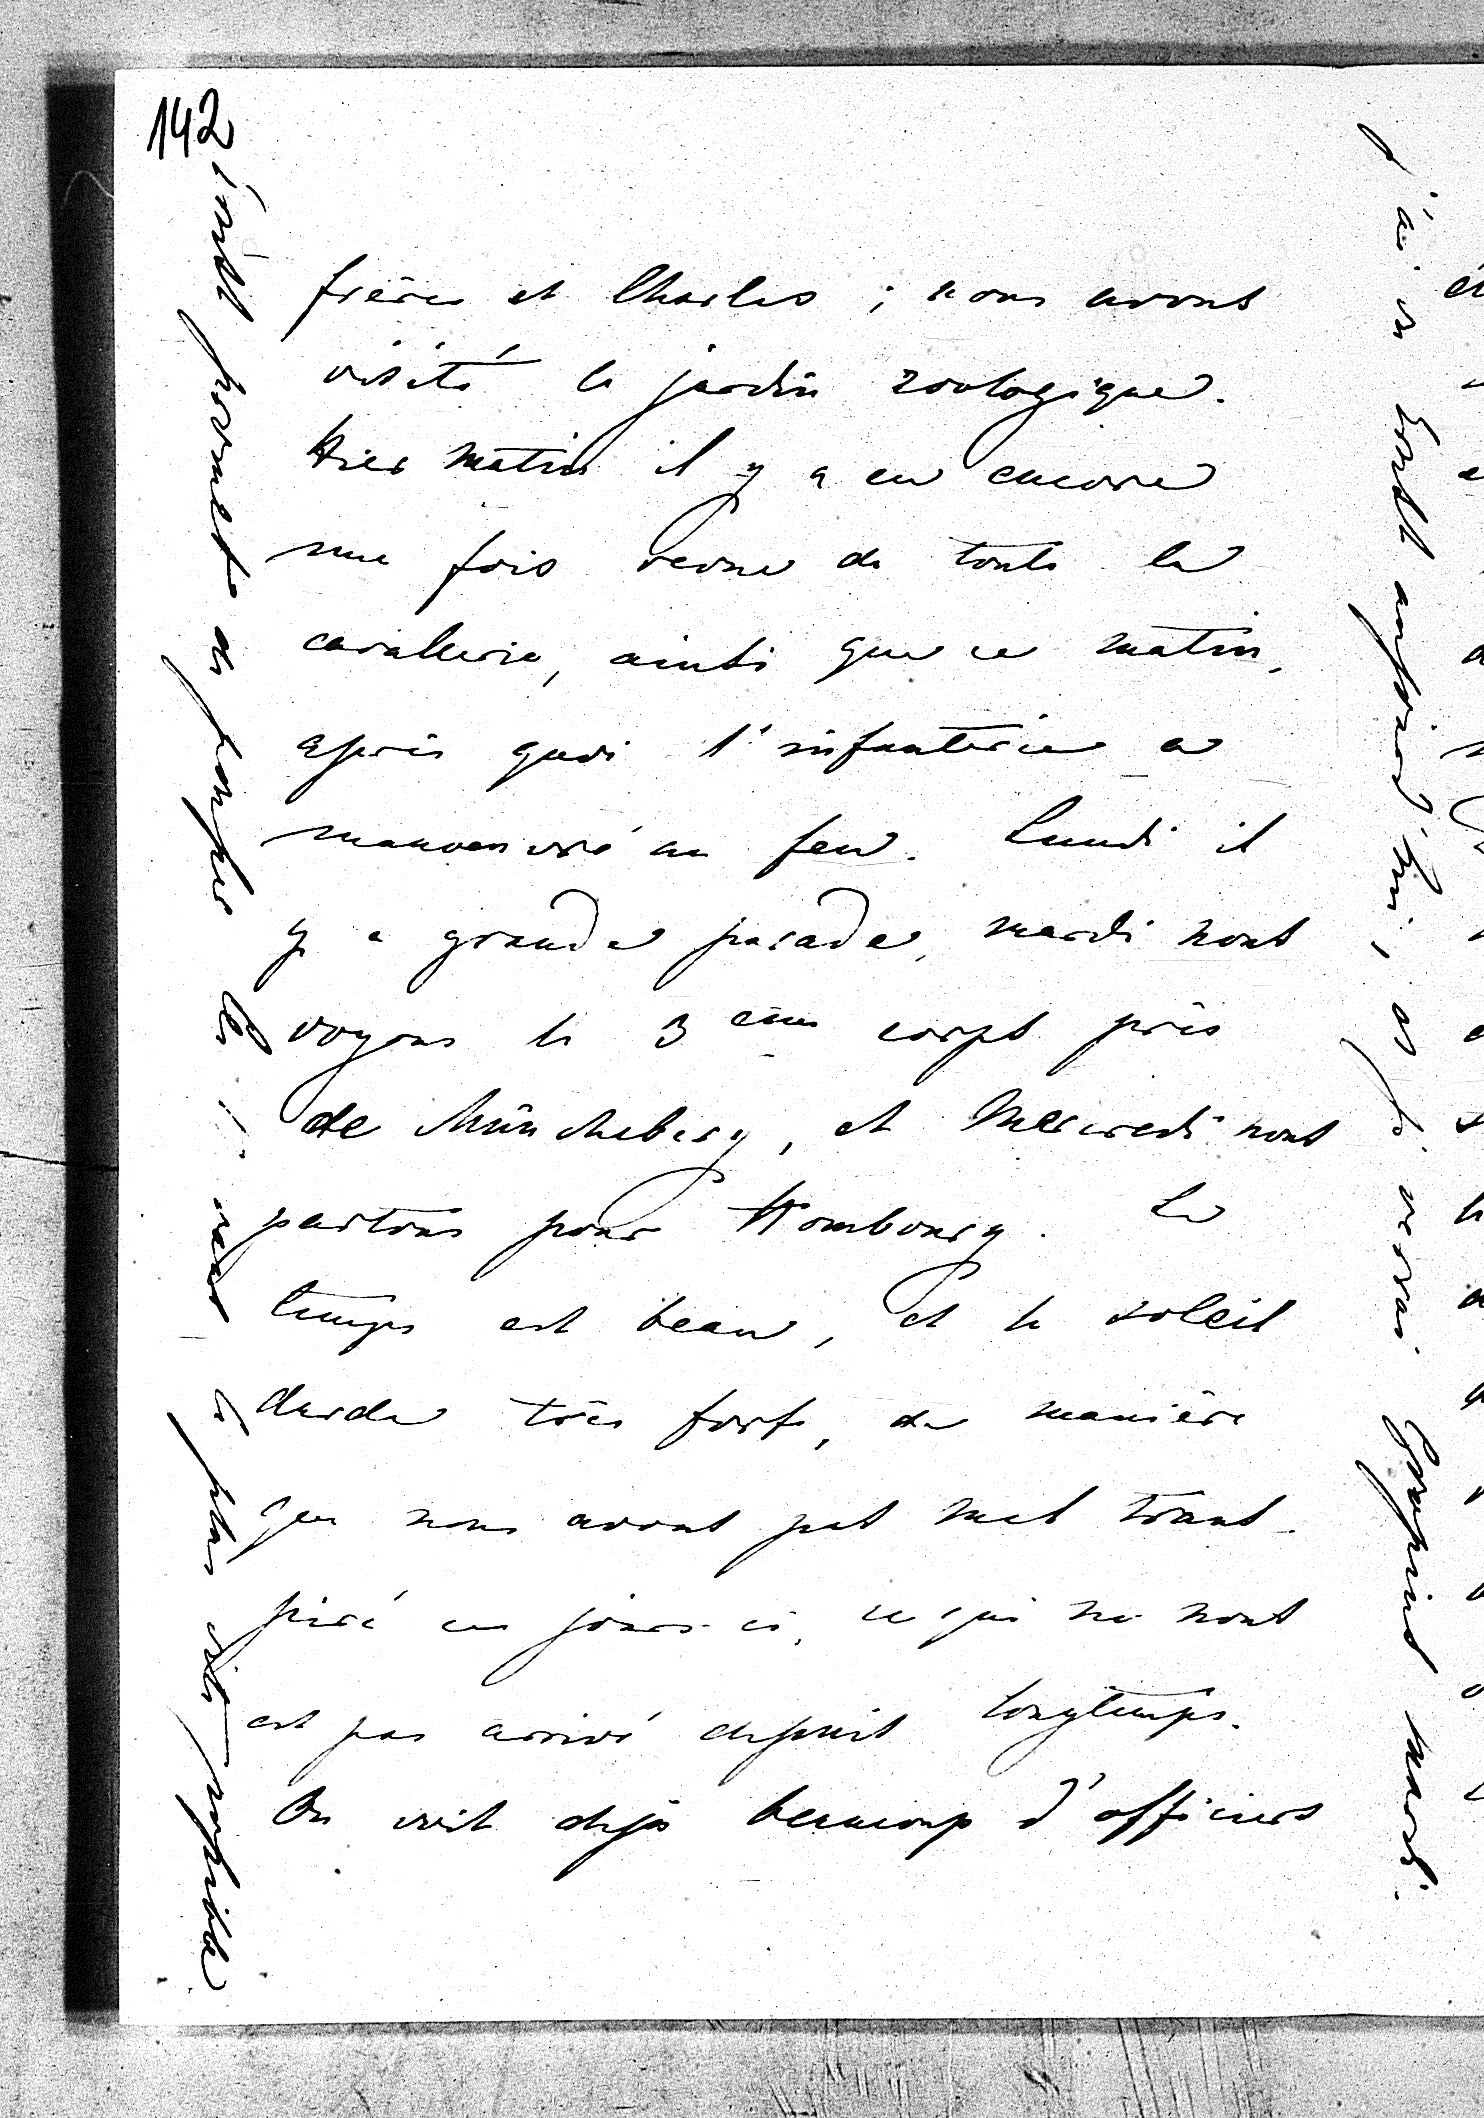 142
frères et Charles ; nous avons
visité le jardin zoologique.
Hier matin il y a eu encore
une fois revue de toute la
cavallerie, ainsi que ce matin,
après quoi l'infanterie a
manoeuvré au feu. Lundi il
y a grande parade, mardi nous
voyons le 3 ème corps près
de Müncheberg, et Mercredi nous
partons pour Hombourg. Le
temps est beau, et le soleil
darde très fort, de manière
que nous avons pas mal trans-
piré ces jours-ci, ce qui ne nous
est pas arrivé depuis longtemps.
On voit déjà beaucoup d'officiers
permets de
le plus vite possible
j'ai vu aujourd'hui, et je verrai mardi.